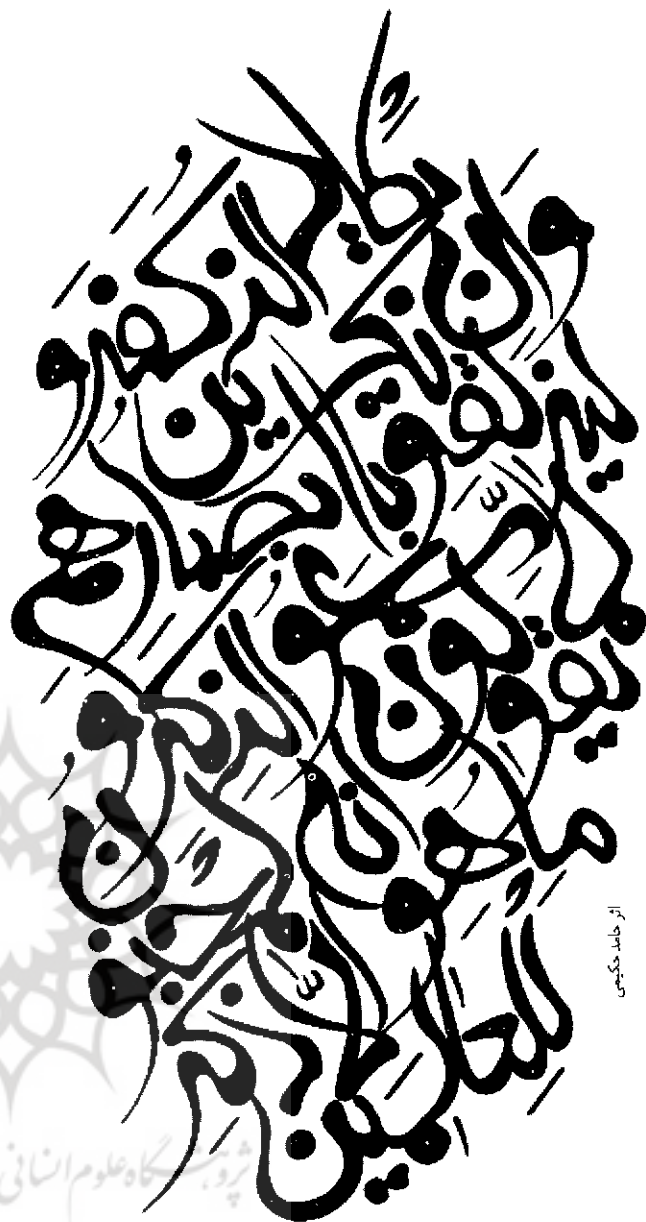 وان یکاد الذین کفروا
لیزلقونک بابصارهم
لما سمعوا الذکر و
یقولون انه لمجنون
و ما هو الا ذکر
للعالمین
اثر حامد حکیمی
پژوهشگاه علوم انسانی